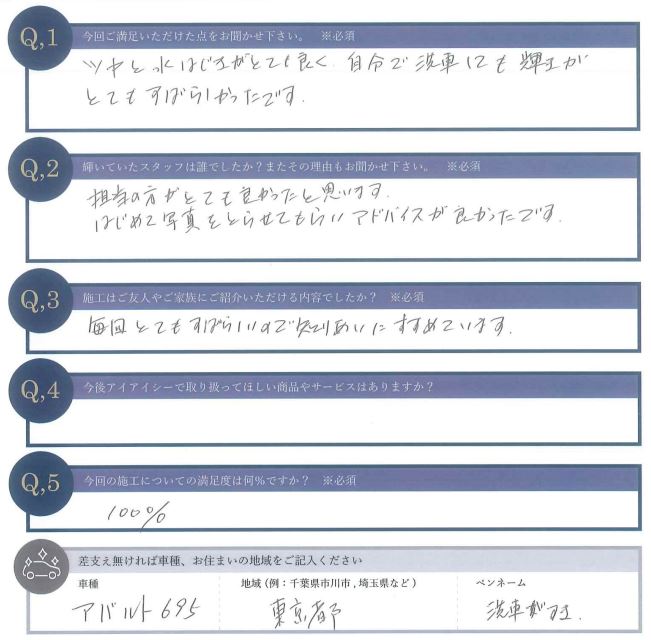 Q,1 今回ご満足いただけた点をお聞かせ下さい。 ※必須
ツヤと水はじきがとても良く、自分で洗車しても輝きが
とてもすばらしかったです。
Q,2 輝いていたスタッフは誰でしたか？またその理由もお聞かせ下さい。 ※必須
担当の方がとても良かったと思います。
はじめて写真をとらせてもらいアドバイスが良かったです。
Q,3 施工はご友人やご家族にご紹介いただける内容でしたか？ ※必須
毎回とてもすばらしいので知りあいにすすめています。
Q,4 今後アイアイシーで取り扱ってほしい商品やサービスはありますか？
Q,5 今回の施工についての満足度は何%ですか？ ※必須
100%
差支え無ければ車種、お住まいの地域をご記入ください
車種 地域（例：千葉県市川市，埼玉県など） ペンネーム
アバルト695 東京都 洗車好き.